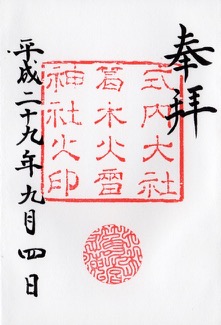 奉拝
式内大社
葛木火雷
神社之印
平成二十九年九月四日